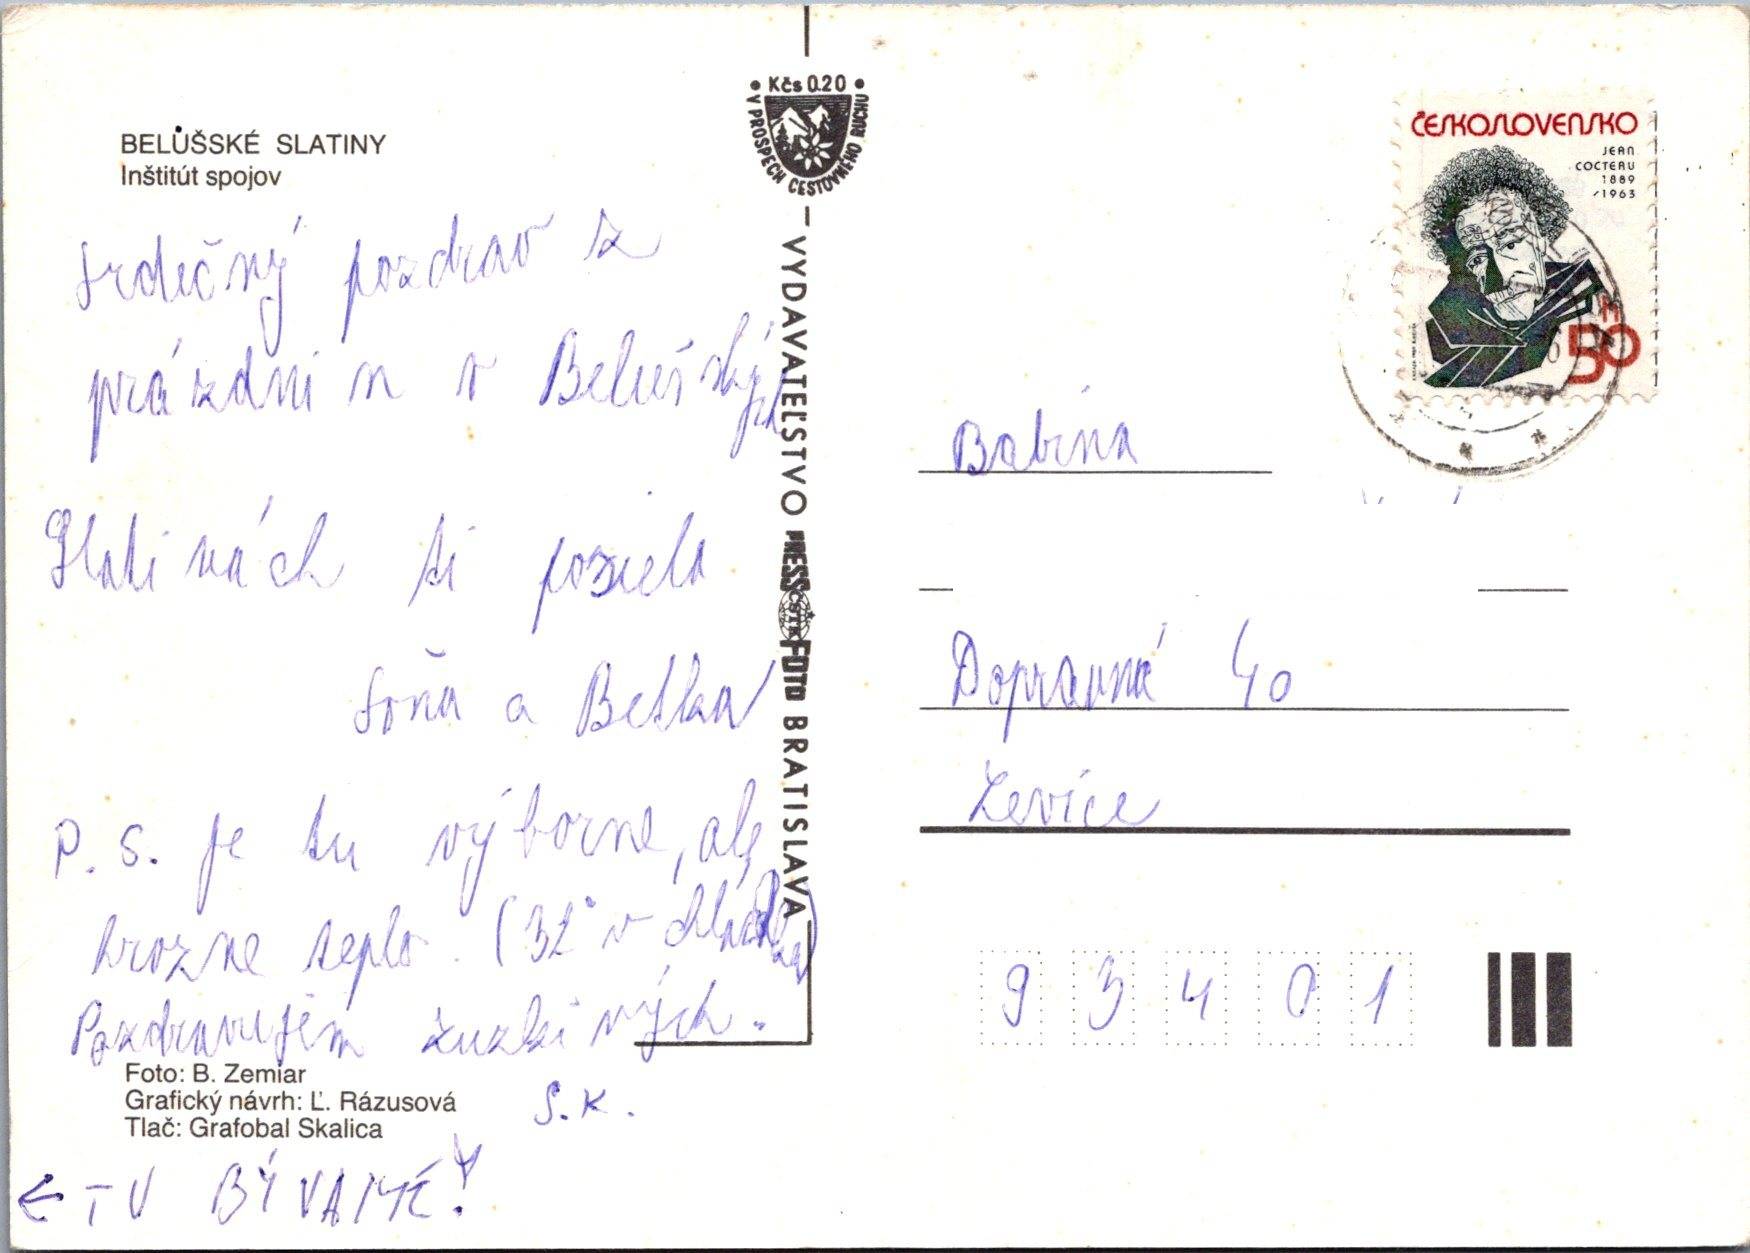 BELUŠSKÉ SLATINY
Inštitút spojov
Srdečný pozdrav z
prázdnin v Belušských
Slatinách ti posiela
Soňa a Betka
P.S. je tu výborne, ale
hrozne teplo. (32° v chládku)
Pozdravujem Zuzkiných.
S.K.
Foto: B. Zemiar
Grafický návrh: Ľ. Rázusová
Tlač: Grafobal Skalica
← TU BÝVAME!
• Kčs 0.20 •
V PROSPECH CESTOVNÉHO RUCHU
VYDAVATEĽSTVO PRESSFOTO BRATISLAVA
ČSTK
ČESKOSLOVENSKO
JEAN
COCTEAU
1889
/1963
50
Babina
Dopravná 40
Levice
93401